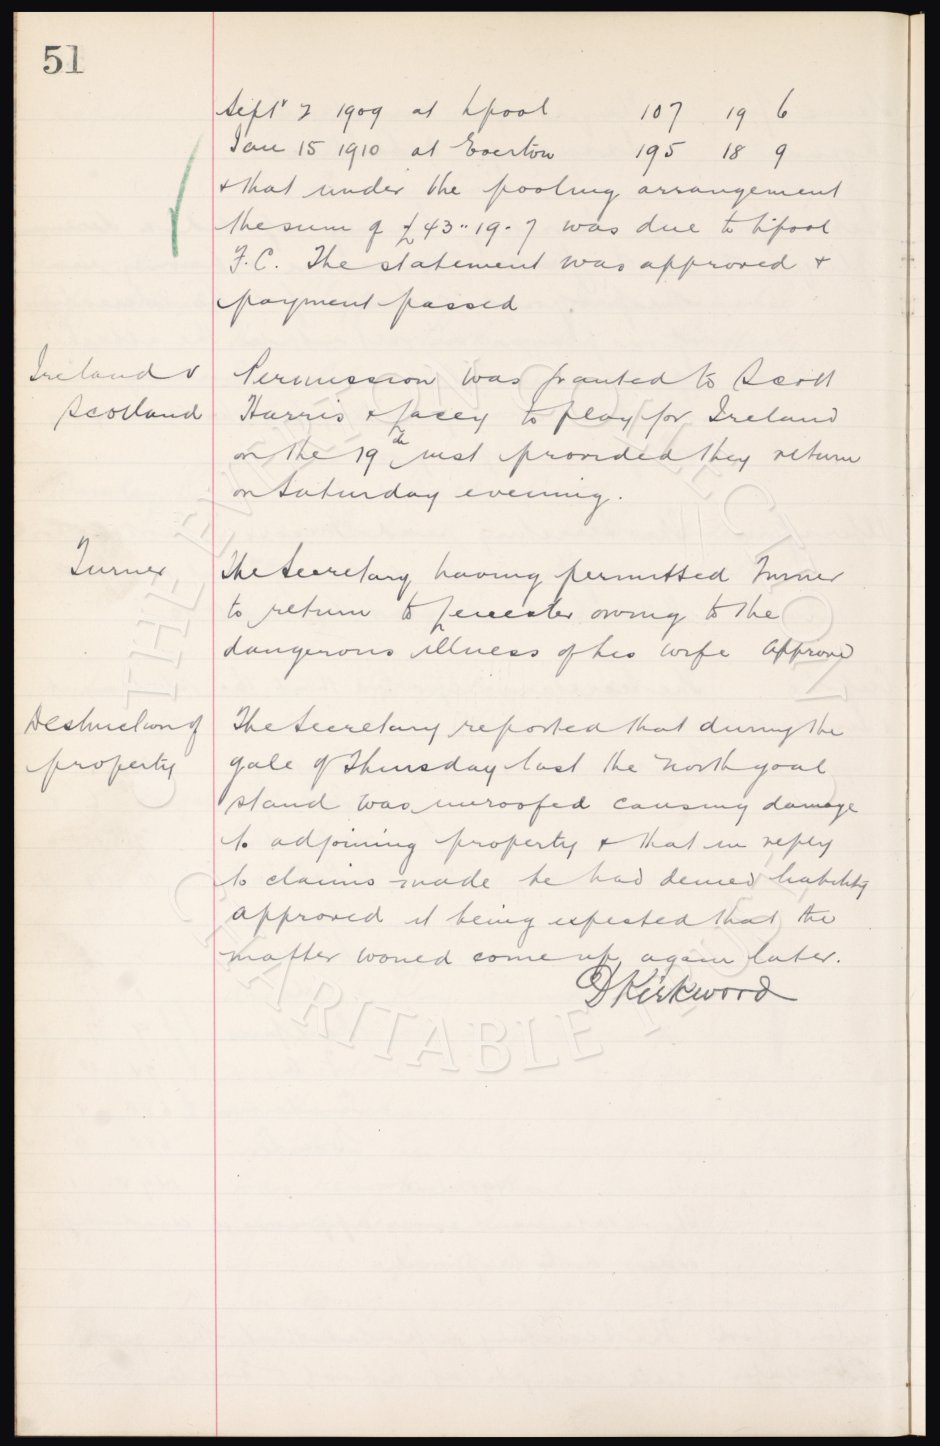 51
Septr 2 1909 at Lpool 107 19 6
Jan 15 1910 at Everton 195 18 9
& that under the pooling arrangement
the sum of £43 " 19 - 7 was due to L'pool
F.C. The statement was approved &
payment passed
Ireland v
Scotland
Permission was granted to Scott
Harris & Lacey to play for Ireland
on the 19th inst provided they return
on Saturday evening.
Turner
The Secretary having permitted Turner
to return to Leicester owing to the
dangerous illness of his wife Approved
Destruction of
property
The Secretary reported that during the
gale of Thursday last the north goal
stand was unroofed causing damage
to adjoining property & that in reply
to claims made he had denied liability
approved it being expected that the
matter would come up again later.
D Kirkwood
© THE EVERTON COLLECTION
CHARITABLE TRUST